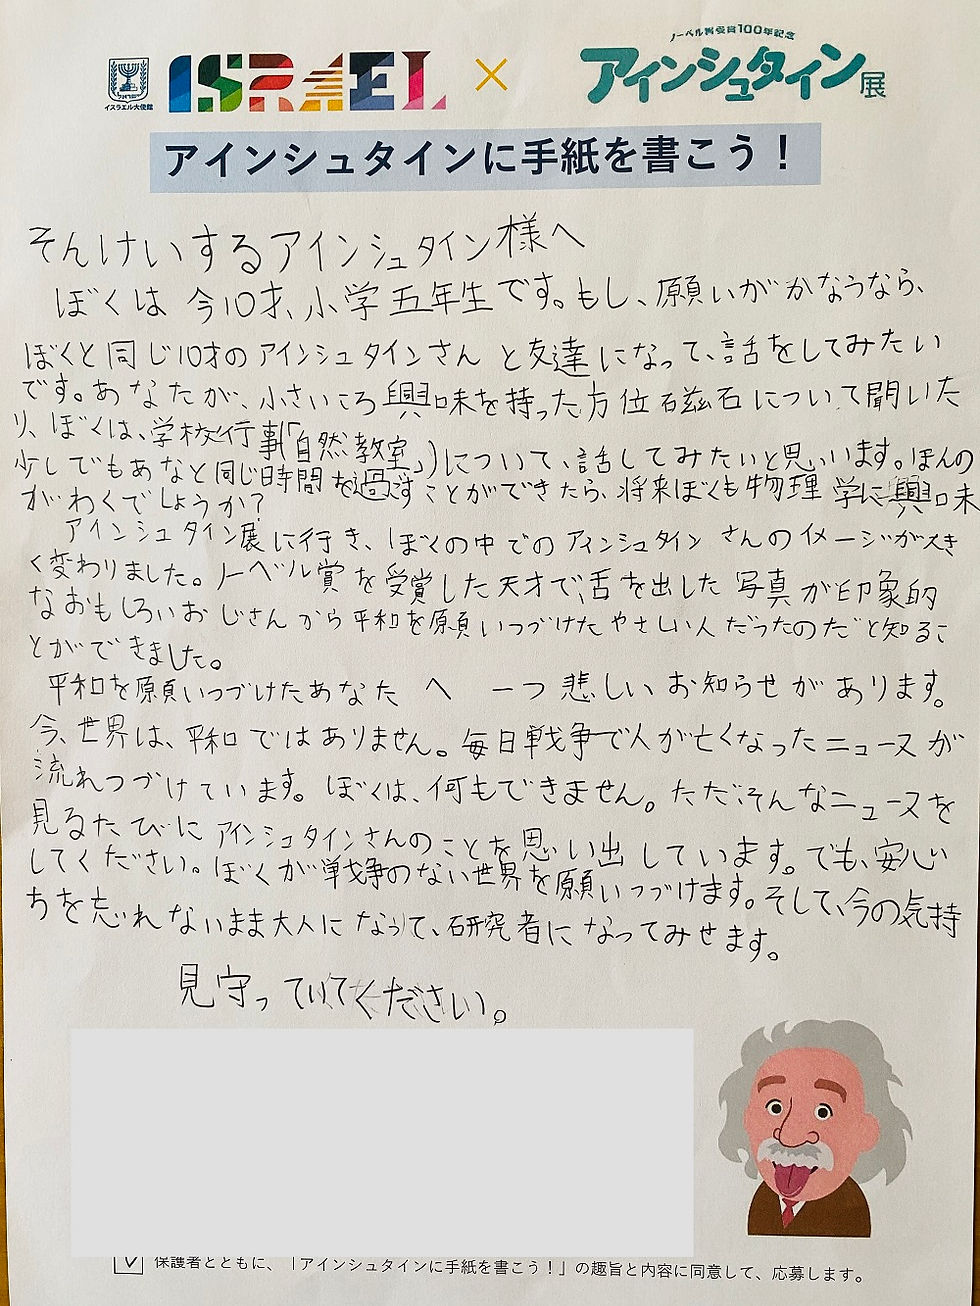 ノーベル賞受賞100年記念
イスラエル大使館
ISRAEL × アインシュタイン展
アインシュタインに手紙を書こう！
そんけいするアインシュタイン様へ
ぼくは今10才、小学五年生です。もし、願いがかなうなら、
ぼくと同じ10才のアインシュタインさんと友達になって、話をしてみたい
です。あなたが、小さいころ興味を持った方位磁石について聞いた
り、ぼくは、学校行事(「自然教室」)について、話してみたいと思います。ほんの
少しでもあなと同じ時間を過すことができたら、将来ぼくも物理学に興味
がわくでしょうか?
アインシュタイン展に行き、ぼくの中でのアインシュタインさんのイメージが大き
く変わりました。ノーベル賞を受賞した天才で、舌を出した写真が印象的
なおもしろいおじさんから平和を願いつづけたやさしい人だったのだと知るこ
とができました。
平和を願いつづけたあなたへ一つ悲しいお知らせがあります。
今、世界は、平和ではありません。毎日戦争で人が亡くなったニュースが
流れつづけています。ぼくは、何もできません。ただ、そんなニュースを
見るたびにアインシュタインさんのことを思い出しています。でも、安心
してください。ぼくが戦争のない世界を願いつづけます。そして、今の気持
ちを忘れないまま大人になって、研究者になってみせます。
見守っていてください。
保護者とともに、「アインシュタインに手紙を書こう！」の趣旨と内容に同意して、応募します。